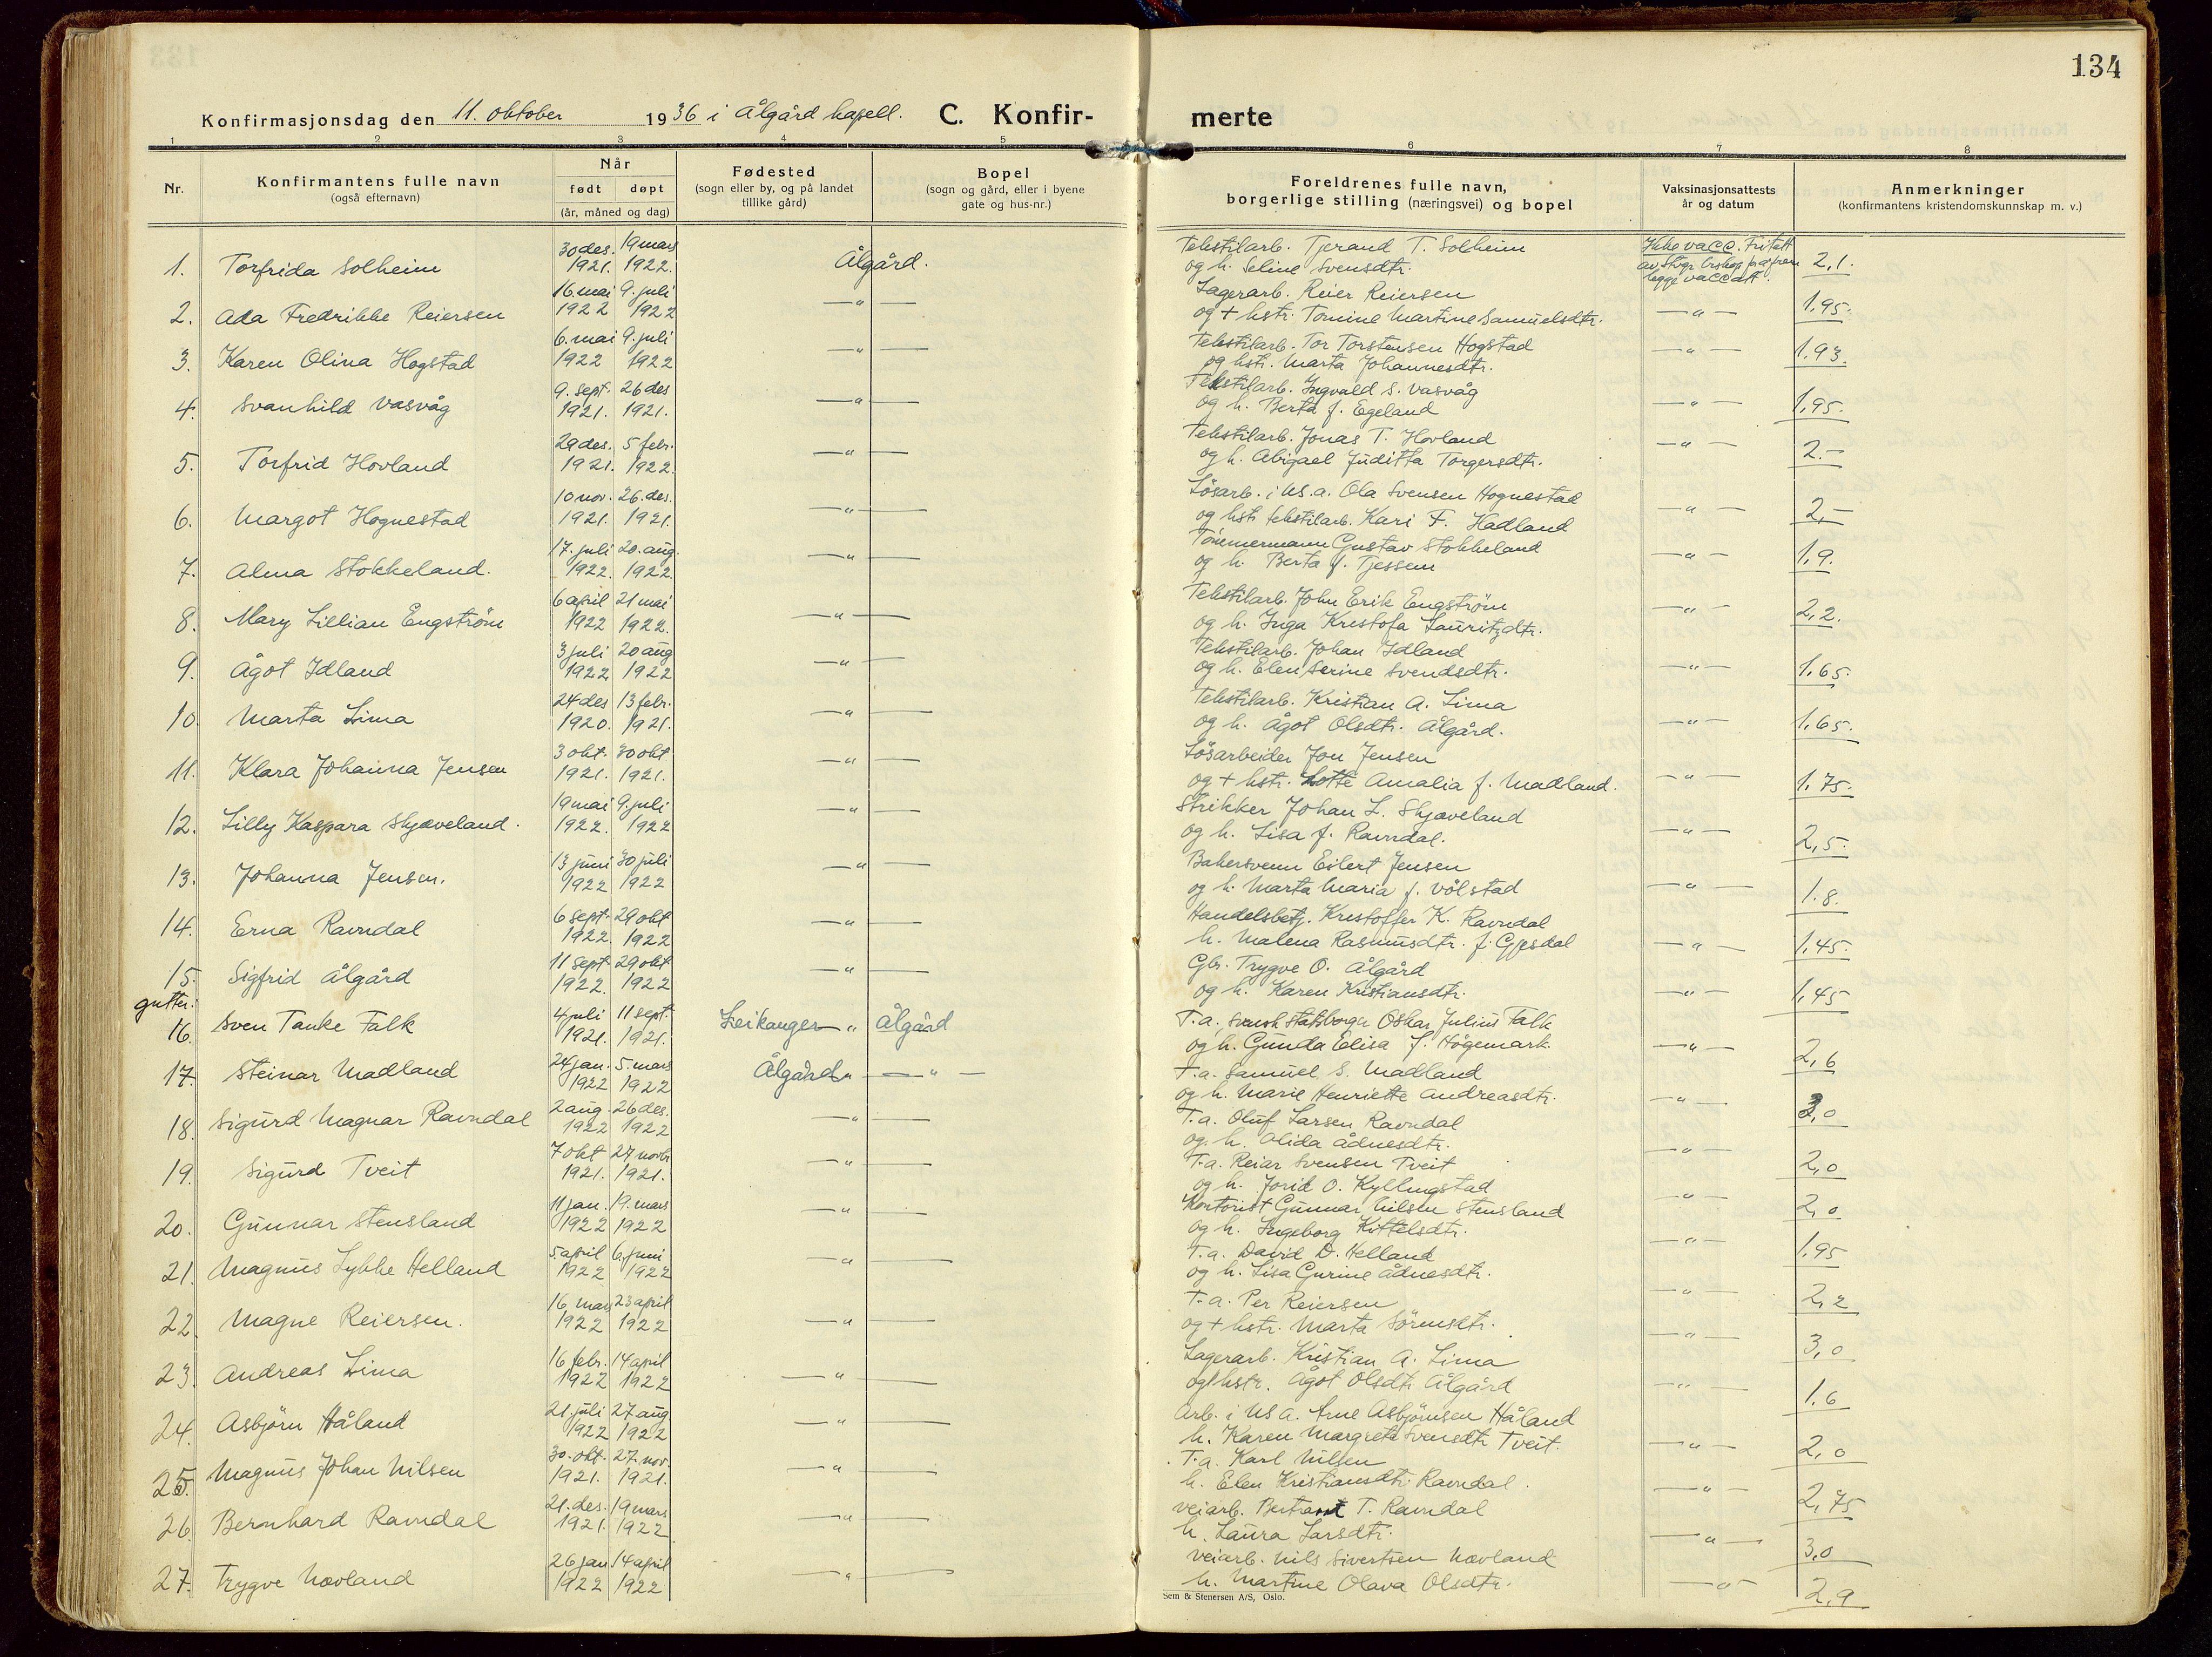 134
Konfirmasjonsdag den 11. oktober 1936 i Ålgård kapell. C. Konfirmerte
1 2 3 4 5 6 7 8
Nr.
Konfirmantens fulle navn
(også efternavn)
Når
født døpt
(år, måned og dag)
Fødested
(sogn eller by, og på landet
tillike gård)
Bopel
(sogn og gård, eller i byene
gate og hus-nr.)
Foreldrenes fulle navn,
borgerlige stilling (næringsvei) og bopel
Vaksinasjonsattests
år og datum
Anmerkninger
(konfirmantens kristendomskunnskap m. v.)
1. Torfrida Solheim 30 des. 1921. 19 mars 1922. Ålgård. Tekstilarb. Tjerand T. Solheim
og h. Seline Svensdtr. Ikke vacc. Fritatt av Stvgr. biskop fra å frem legge vacc att. 2,1.
2. Ada Fredrikke Reiersen 16. mai 1922 9. juli 1922 — " — Lagerarb. Reier Reiersen
og + hstr. Tomine Martine Samuelsdtr. — " — 1,95.
3. Karen Olina Hogstad 6. mai 1922 9. juli 1922 — " — Tekstilarb. Tor Torstensen Hogstad
og hstr. Marta Johannesdtr. — " — 1,93.
4. Svanhild Vasvåg 9. sept. 1921. 26 des 1921. — " — Tekstilarb. Ingvald S. Vasvåg
og h. Berta f. Egeland — " — 1,95.
5. Torfrid Hovland 29 des. 1921. 5 febr. 1922. — " — Tekstilarb. Jonas T. Hovland
og h. Abigael Juditta Torgersdtr. — " — 2.—
6. Margot Hognestad 10 nov. 1921. 26. des. 1921. — " — Lösarb. i U.S.a. Ola Svensen Hognestad
og hstr tekstilarb. Kari F. Hadland — " — 2,—
7. Alma Stokkeland. 17. juli 1922. 20. aug. 1922. — " — Tömmermann Gustav Stokkeland
og h. Berta f. Tjessem — " — 1,9.
8. Mary Lillian Engström 6 april 1922 21 mai 1922. — " — Tekstilarb. John Erik Engström
og h. Inga Kristofa Lauritzdtr. — " — 2,2.
9. Ågot Idland 3 juli 1922 20 aug 1922 — " — Tekstilarb. Johan Idland
og h. Elen Serine Svendsdtr. — " — 1,65.
10. Marta Lima 24 des 1920. 13 febr. 1921. — " — Tekstilarb. Kristian A. Lima
og h. Ågot Olsdtr. Ålgård. — " — 1,65.
11. Klara Johanna Jensen 3 okt. 1921. 30 okt. 1921. — " — Lösarbeider Jon Jensen
og + hstr. Lotte Amalia f. Madland. — " — 1,75.
12. Lilly Kaspara Skjæveland. 19 mai 1922. 9. juli 1922 — " — Strikker Johan L. Skjæveland
og h. Lisa f. Ravndal. — " — 2,5.
13. Johanna Jensen. 13 juni 1922 30 juli 1922 — " — Bakersvenn Eilert Jensen
og h. Marta Maria f. Vålstad — " — 1.8.
14. Erna Ravndal 6 sept. 1922. 29 okt 1922 — " — Handelsbetj. Kristoffer K. Ravndal
h. Malena Rasmusdtr. f. Gjesdal — " — 1,45.
15. Sigfrid Ålgård 11 sept. 1922. 29 okt 1922 — " — Gbr. Trygve O. Ålgård
og h. Karen Kristiansdtr. — " — 1,45
gutter:
16. Sven Tanke Falk 4 juli 1921. 11 sept. 1921. Leikanger Ålgård T.a., svensk statsborger Oskar Julius Falk
og h. Gunda Elisa f. Högemark. — " — 2,6
17. Steinar Madland 24 jan. 1922 5. mars 1922 Ålgård — " — T.a. Samuel S. Madland
og h. Marie Henriette Andreasdtr. — " — 3,0
18. Sigurd Magnar Ravndal 2 aug. 1922 26 des. 1922 — " — T.a. Oluf Larsen Ravndal
og. h. Olida Ådnesdtr. — " — 2,0
19. Sigurd Tveit 7 okt 1921. 27 novbr 1921. — " — T.a. Reiar Svensen Tveit
og h. Jorid O. Kyllingstad — " — 2,0
20. Gunnar Stensland 11 jan. 1922 19. mars 1922 — " — Kontorist Gunnar Nilsen Stensland
og h. Ingeborg Kittelsdtr. — " — 1,95
21. Magnus Lykke Helland 5. april 1922 6. juni 1922 — " — T.a. David D. Helland
og h. Lisa Gurine Ådnesdtr. — " — 2,2
22. Magne Reiersen. 16. mars 1922 23 april 1922 — " — T.a. Per Reiersen
og + hstr. Marta Sörensdtr. — " — 3,0
23. Andreas Lima 16 febr. 1922 14 april 1922 — " — Lagerarb. Kristian A. Lima
og hstr. Ågot Olsdtr Ålgård — " — 1.6
24. Asbjörn Håland 21. juli 1922 27. aug 1922 — " — Arb. i U S A. Arne Asbjörnsen Håland
h. Karen Margrete Svensdtr Tveit. — " — 2,0
25. Magnus Johan Nilsen 30. okt. 1921. 27. nov. 1921. — " — T.a. Karl Nilsen
h. Elen Kristiansdtr. Ravndal. — " — 2,75
26. Bernhard Ravndal 21. des. 1921. 19 mars 1922 — " — Veiarb. Bertrant T. Ravndal
h. Laura Larsdtr. — " — 3,0
27. Trygve Novland 26 jan 1922 14 april 1922 — " — Veiarb. Nils Sivertsen Novland
h. Martine Olava Olsdtr. — " — 2,9
Sem & Stenersen A/S, Oslo.